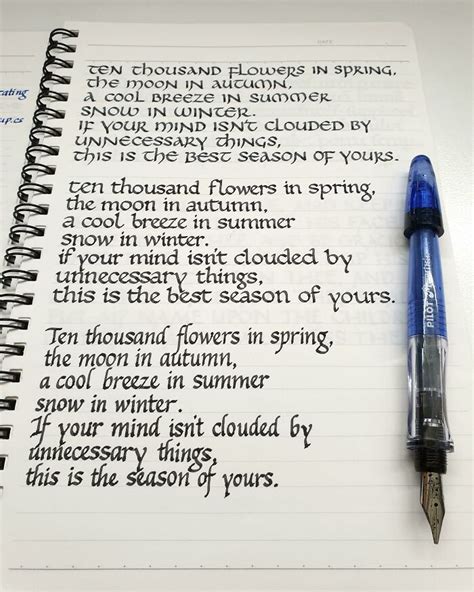 DATE
ten thousand flowers in spring,
the moon in autumn,
a cool breeze in summer
snow in winter.
if your mind isn't clouded by
unnecessary things,
this is the best season of yours.
ten thousand flowers in spring,
the moon in autumn,
a cool breeze in summer
snow in winter.
if your mind isn't clouded by
unnecessary things,
this is the best season of yours.
Ten thousand flowers in spring,
the moon in autumn,
a cool breeze in summer
snow in winter.
If your mind isn't clouded by
unnecessary things,
this is the season of yours.
PILOT